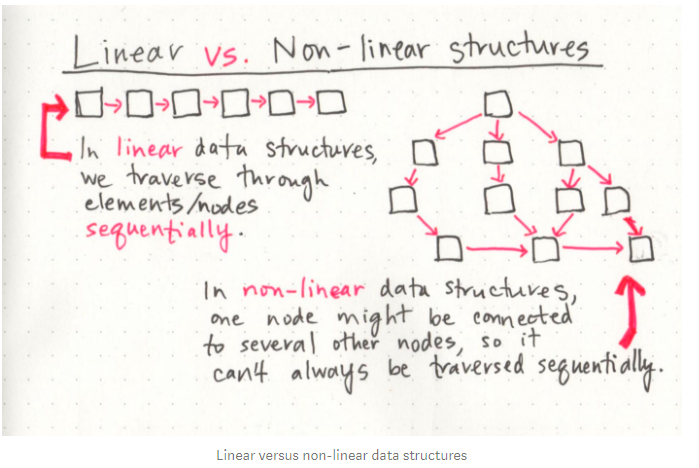 Linear vs. Non-linear structures
In linear data structures,
we traverse through
elements/nodes
sequentially.
In non-linear data structures,
one node might be connected
to several other nodes, so it
can't always be traversed sequentially.
Linear versus non-linear data structures